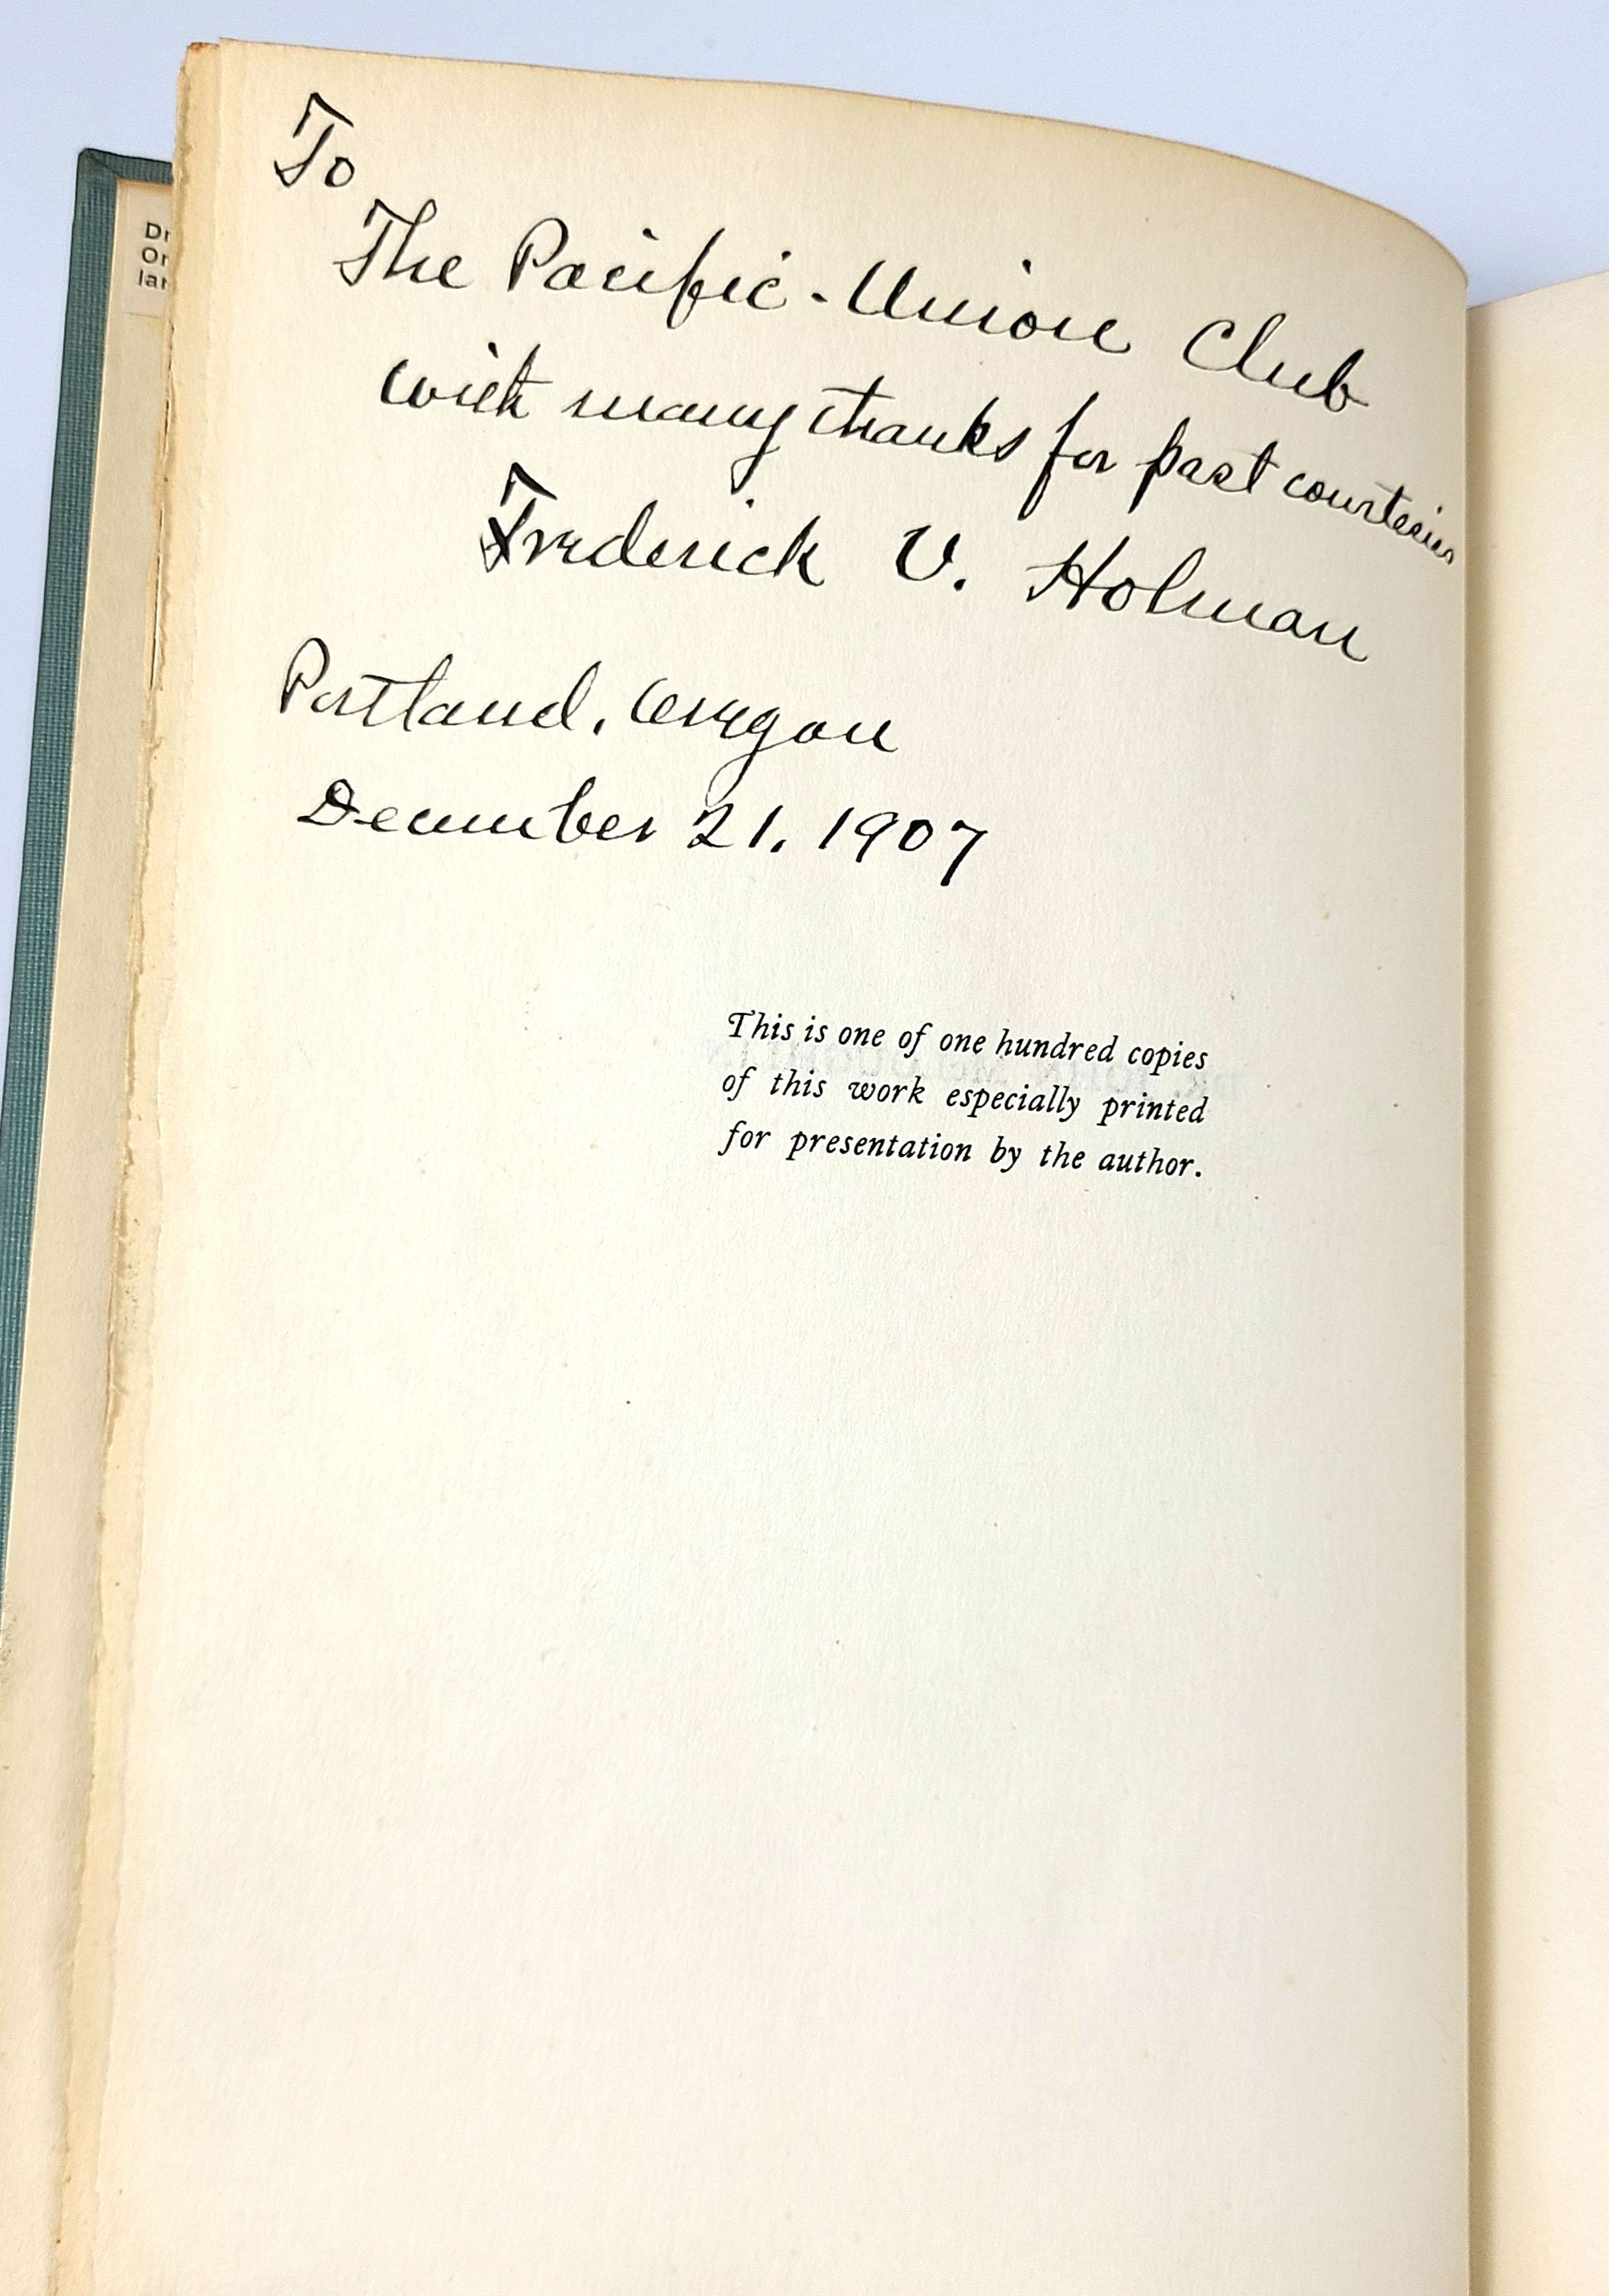 To
The Pacific-Union Club
with many thanks for past courtesies
Frederick V. Holman
Portland, Oregon
December 21, 1907
This is one of one hundred copies
of this work especially printed
for presentation by the author.